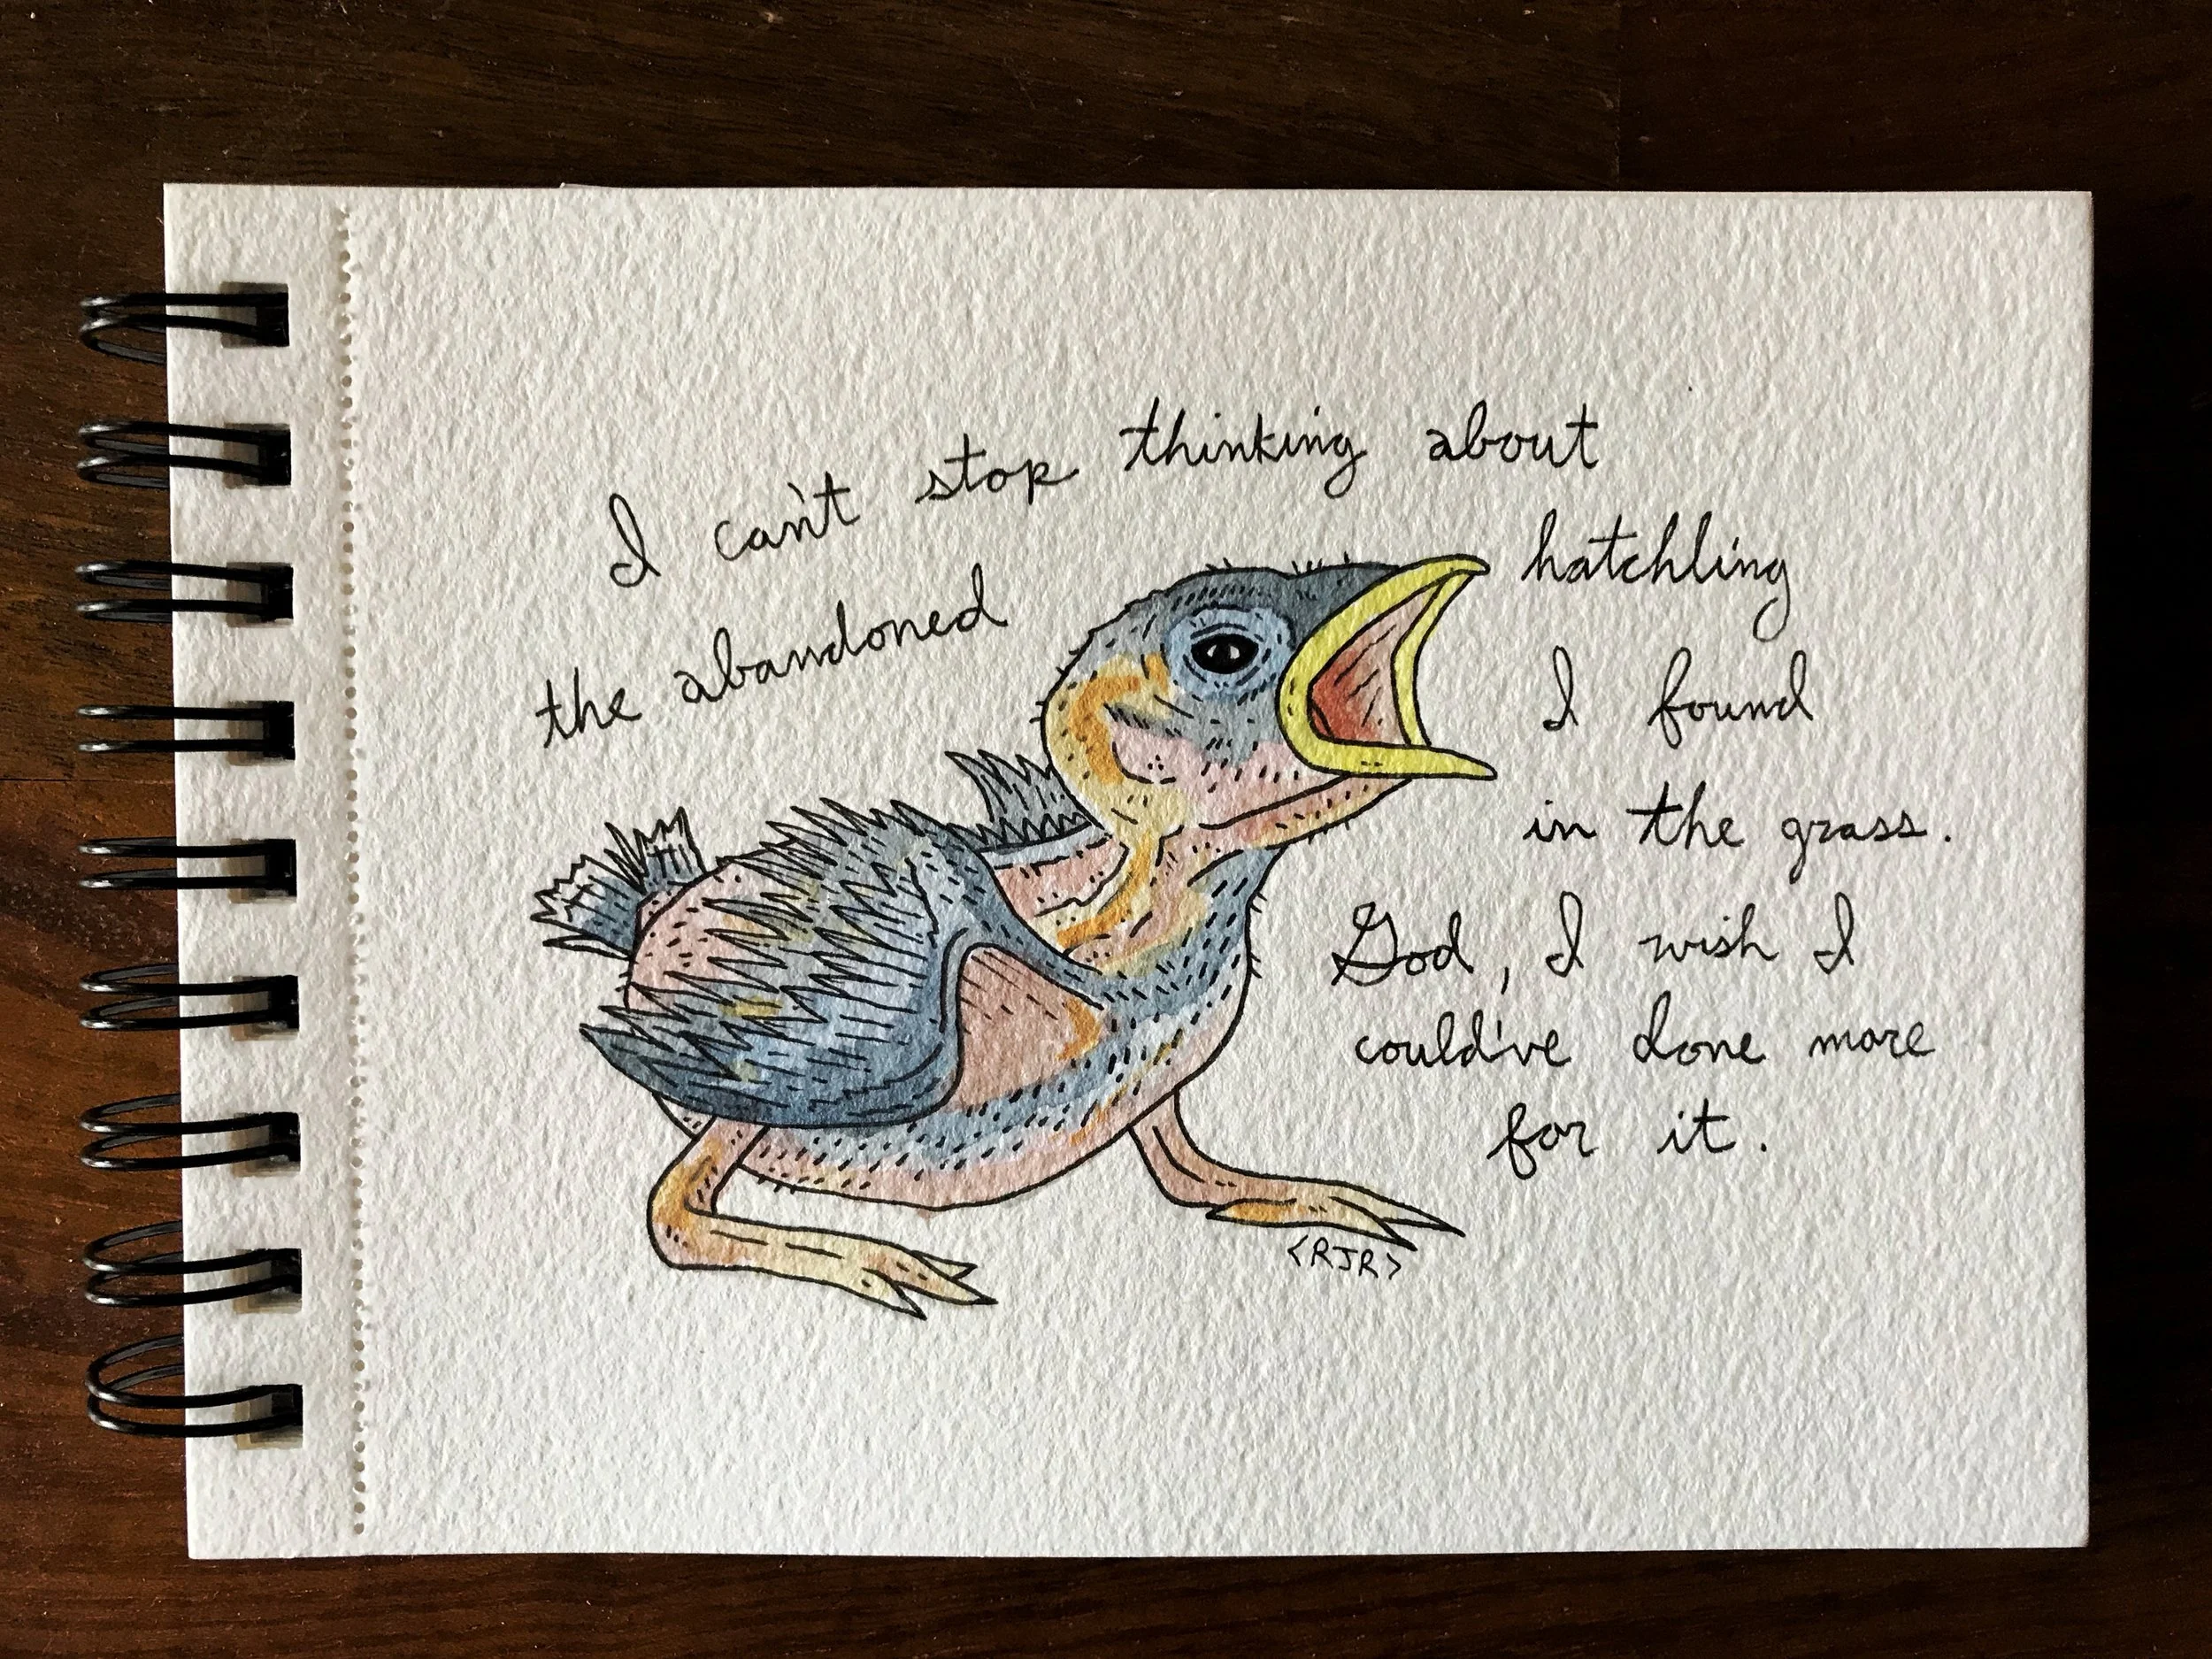 I can't stop thinking about
the abandoned hatchling
I found
in the grass.
God, I wish I
could've done more
for it.
<RJR>